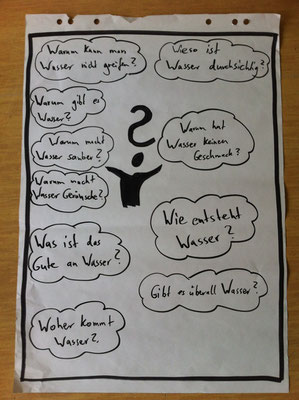 Warum kann man
Wasser nicht greifen?
Wieso ist
Wasser durchsichtig?
Warum gibt es
Wasser?
Warum macht
Wasser sauber?
Warum hat
Wasser keinen
Geschmack?
Warum macht
Wasser Geräusche?
Wie entsteht
Wasser?
Was ist das
Gute an Wasser?
Gibt es überall Wasser?
Woher kommt
Wasser?